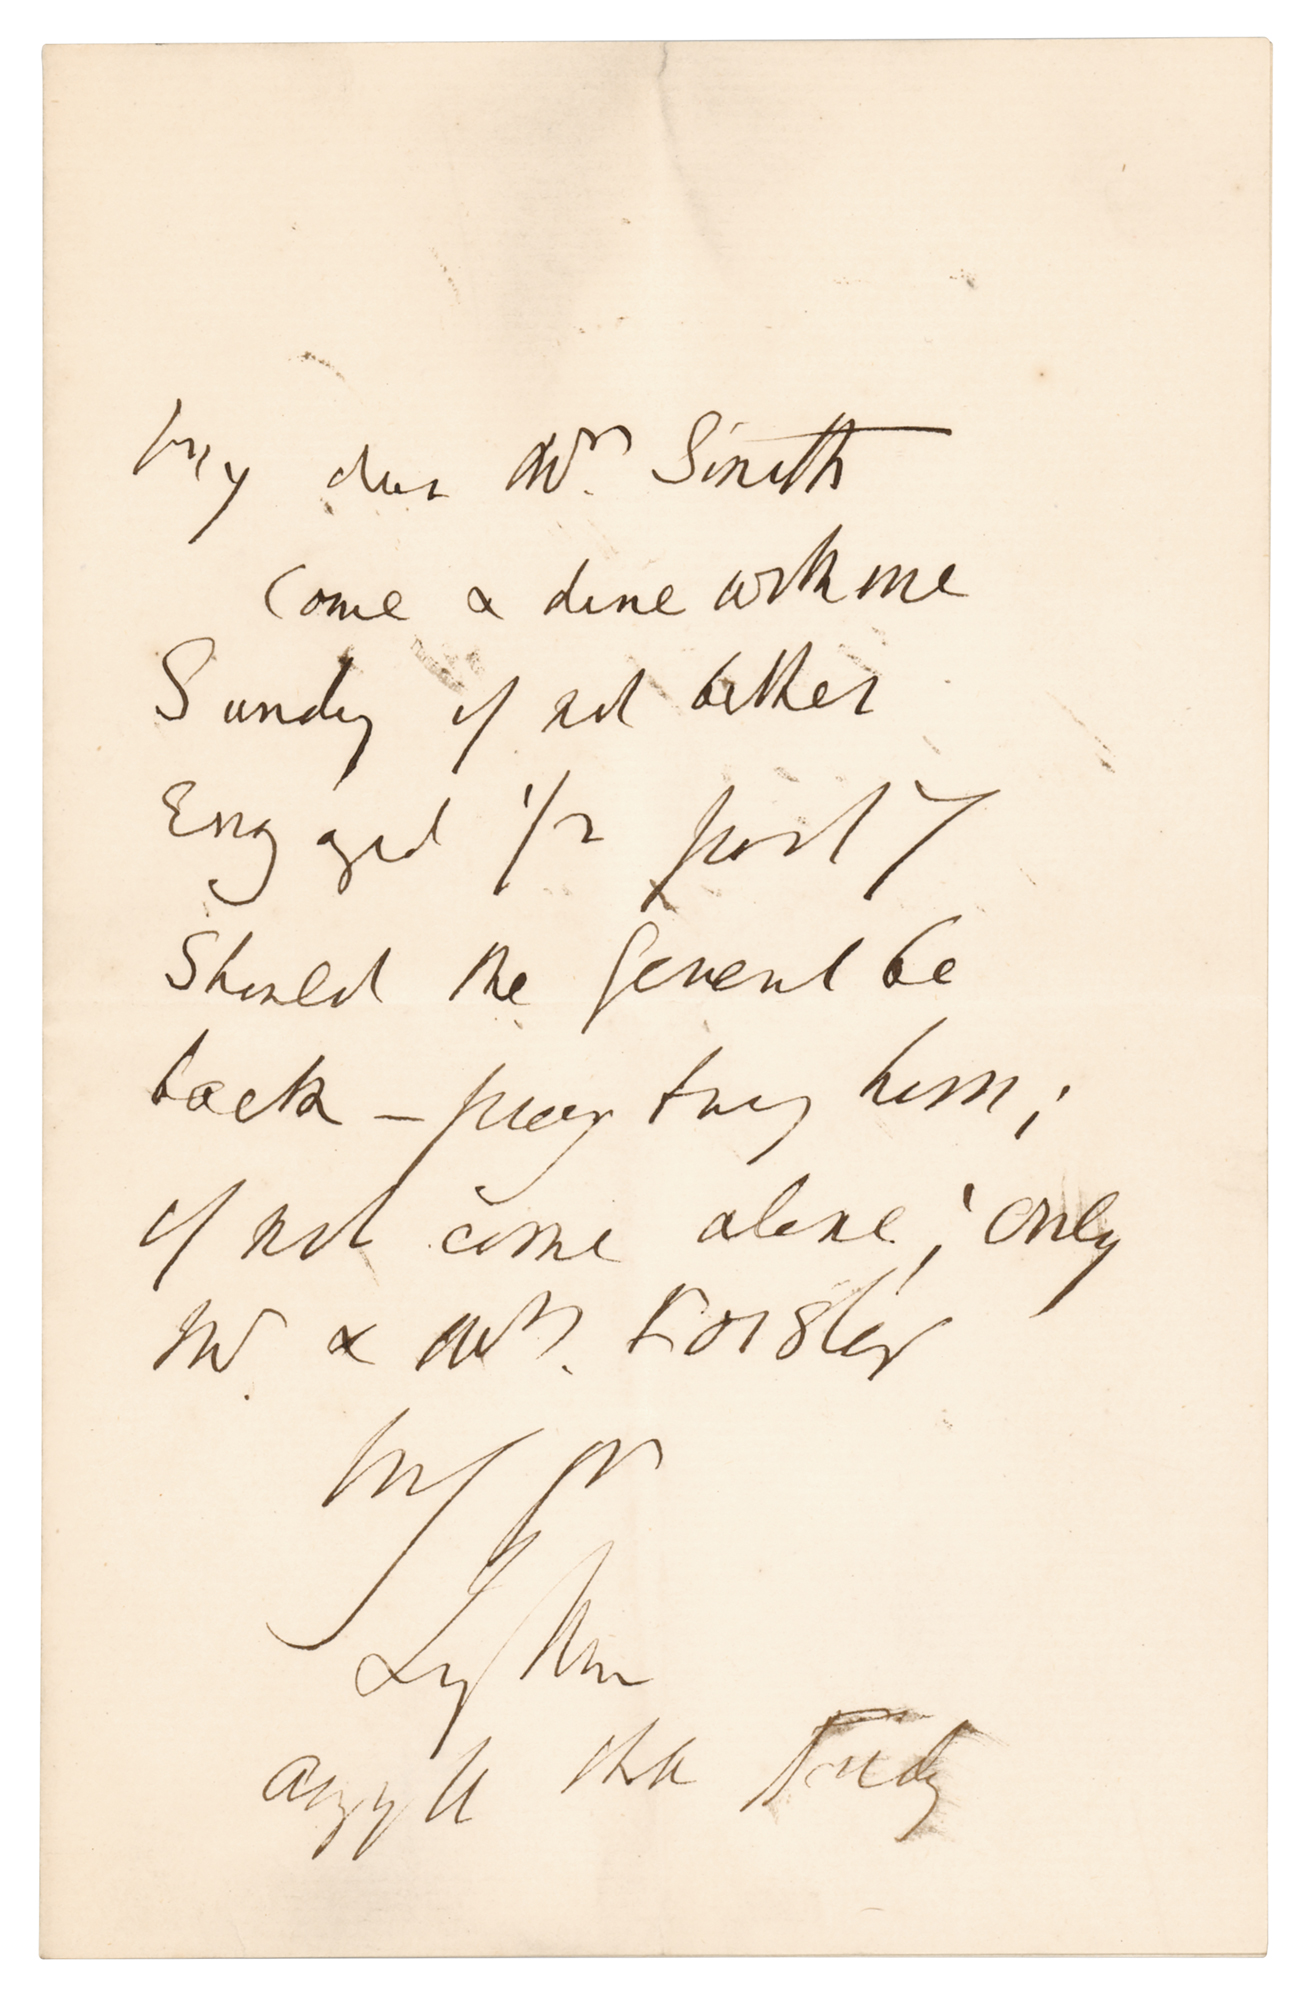 My dear Mrs. Smith
Come & dine with me
Sunday if not better
Engaged 1/2 past 7
Should the General be
back – pray bring him;
if not come alone; only
Mr. & Mrs. Forster
Lytton
Argyll Friday